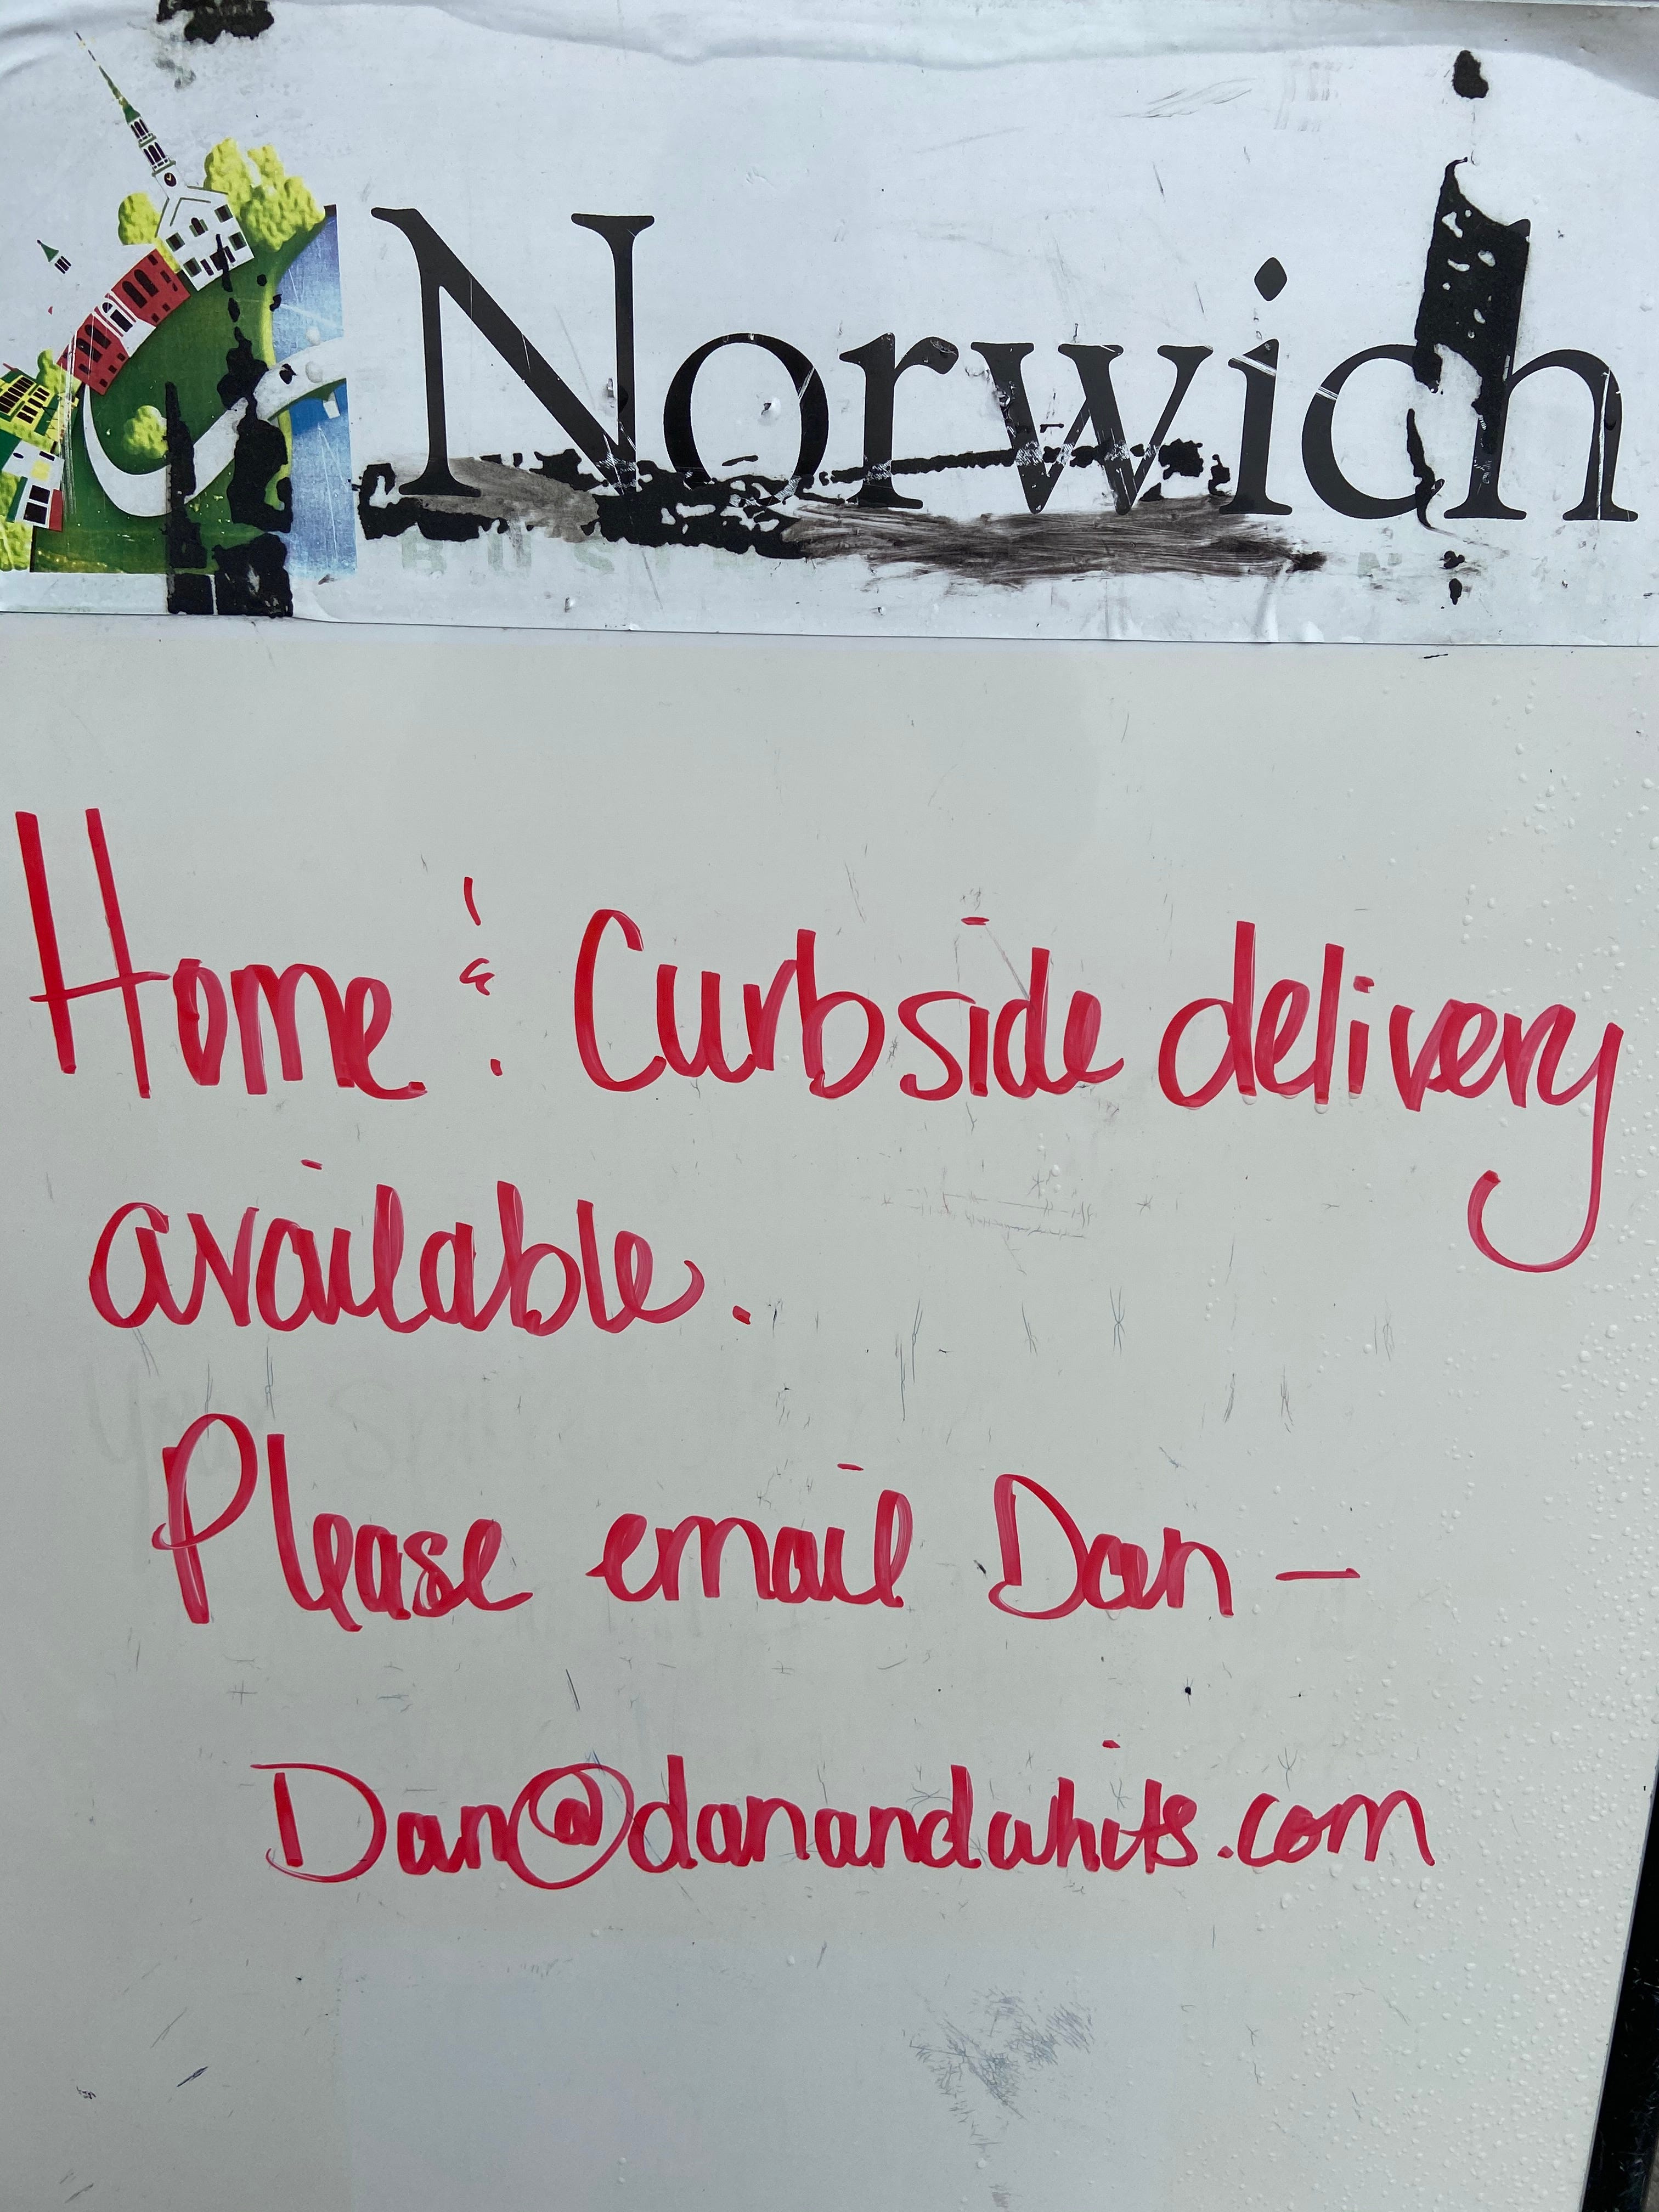 Norwich
Home & Curbside delivery
available.
Please email Dan —
Dan@danandwhits.com